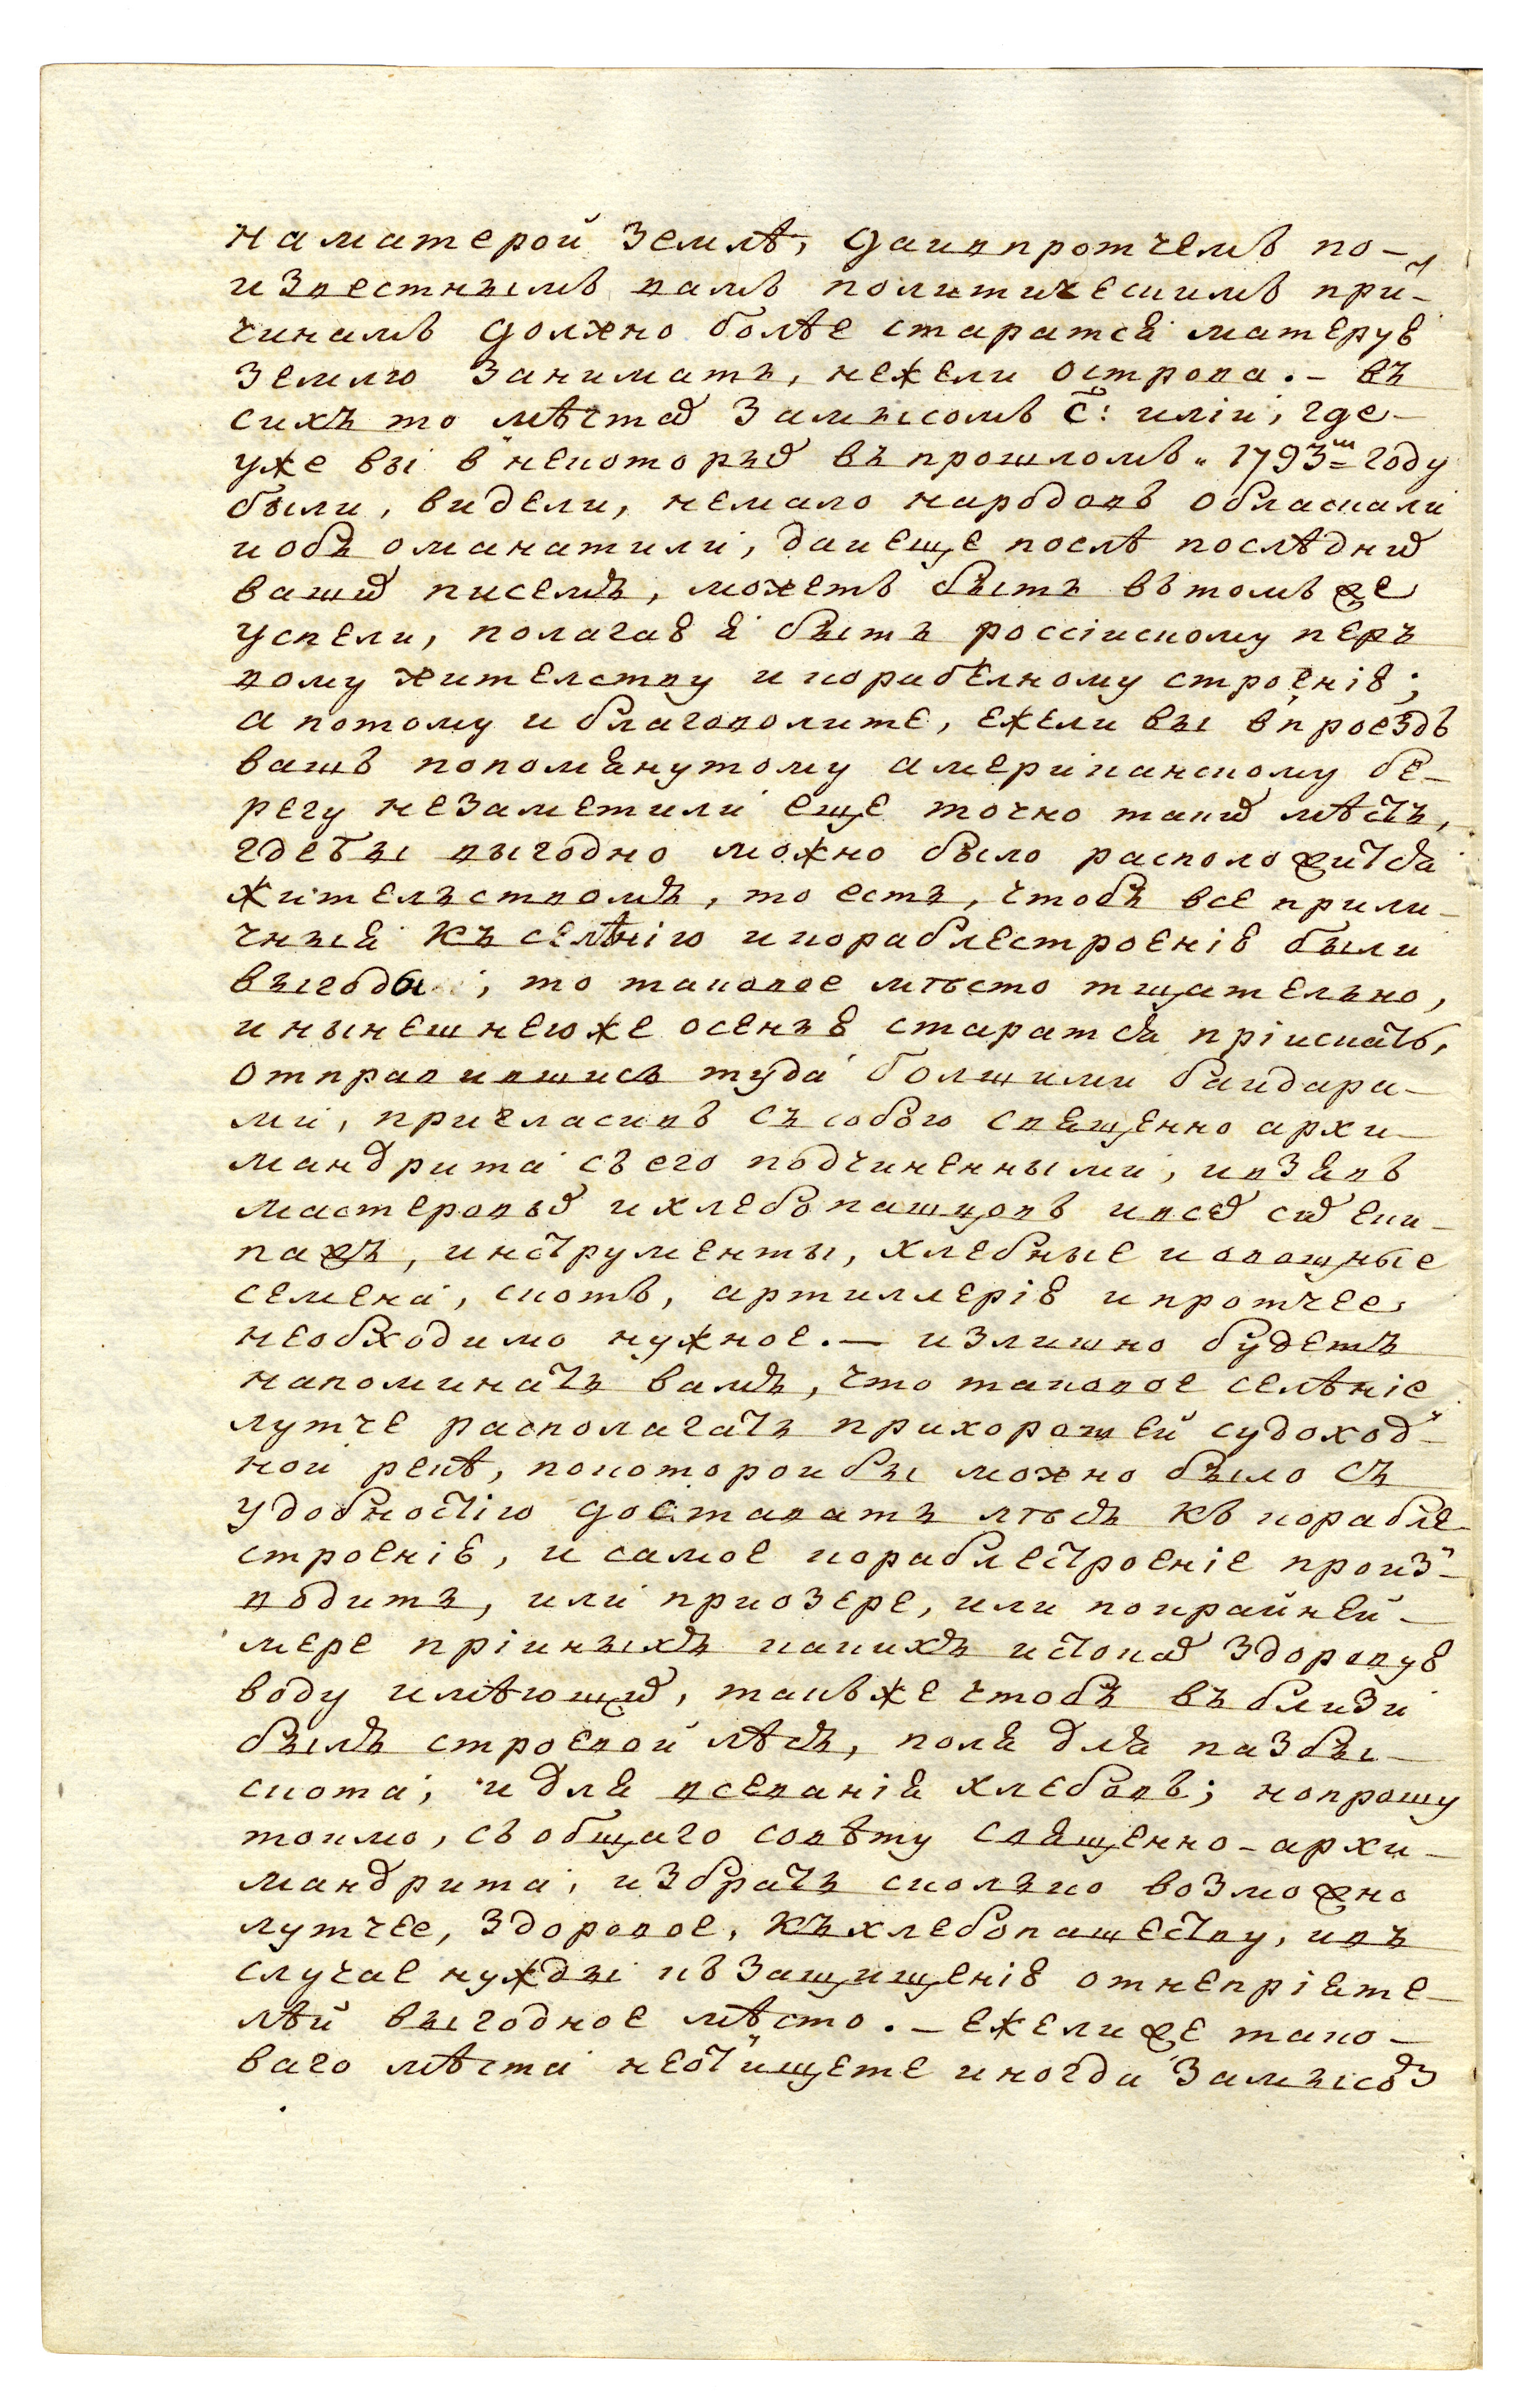 на матерой землѣ, да и впротчемъ по-
известнымъ вамъ политическимъ при-
чинамъ должно болѣе старатся матерую
землю занимать, нежели острова. - въ
сихъ то мѣстах за мысомъ с: илiи, где-
уже вы в некоторых въ прошломъ 1793м году
были, видели, немало народовъ обласкали
и объ оманатили, да и еще послѣ послѣдних
ваших писемъ, можетъ быть въ томъ же
успели, полагая я быть россiискому пер-
вому жителству и корабелному строенiю;
а потому и благоволите, ежели вы в проездъ
вашъ попомянутому американскому бе-
регу незаметили еще точно таких мѣстъ,
гдебы выгодно можно было расположится
жительствомъ, то есть, чтобъ все прили-
чныя къ селѣнiю и кораблестроенiю были
выгоды, то таковое мѣсто тщательно,
и нынешнеюже осенью старатся прiискать,
отправившись туда болшими байдара-
ми, пригласивъ съ собою священно архи-
мандрита съ его подчиненными, и взявъ
мастеровых и хлебопашцовъ и всех сих еки-
пажъ, инструменты, хлебные и овощные
семена, скотъ, артиллерiю и протчее
необходимо нужное. - излишно будетъ
напоминать вамъ, что таковое селѣнiе
лутче располагать при хорошей судоход-
ной рекѣ, по которой бы можно было съ
удобностiю доставать лѣсъ къ корабле-
строенiю, и самое кораблестроенiе произ-
водить, или при озере, или по крайней-
мере прiиныхъ какихъ истоках здоровую
воду имѣющих, такъже чтобъ въ близи
былъ строевой лѣсъ, поля для пазбы
скота, и для всеванiя хлебовъ; но прошу
токмо, съ общаго совѣту священно-архи-
мандрита, избрать сколько возможно
лутчее, здоровое, къ хлебопашеству, и въ
случае нужды къ защищенiю от непрiяте-
лѣй выгодное мѣсто. - ежели же тако-
ваго мѣста неотыщете иногда за мысом